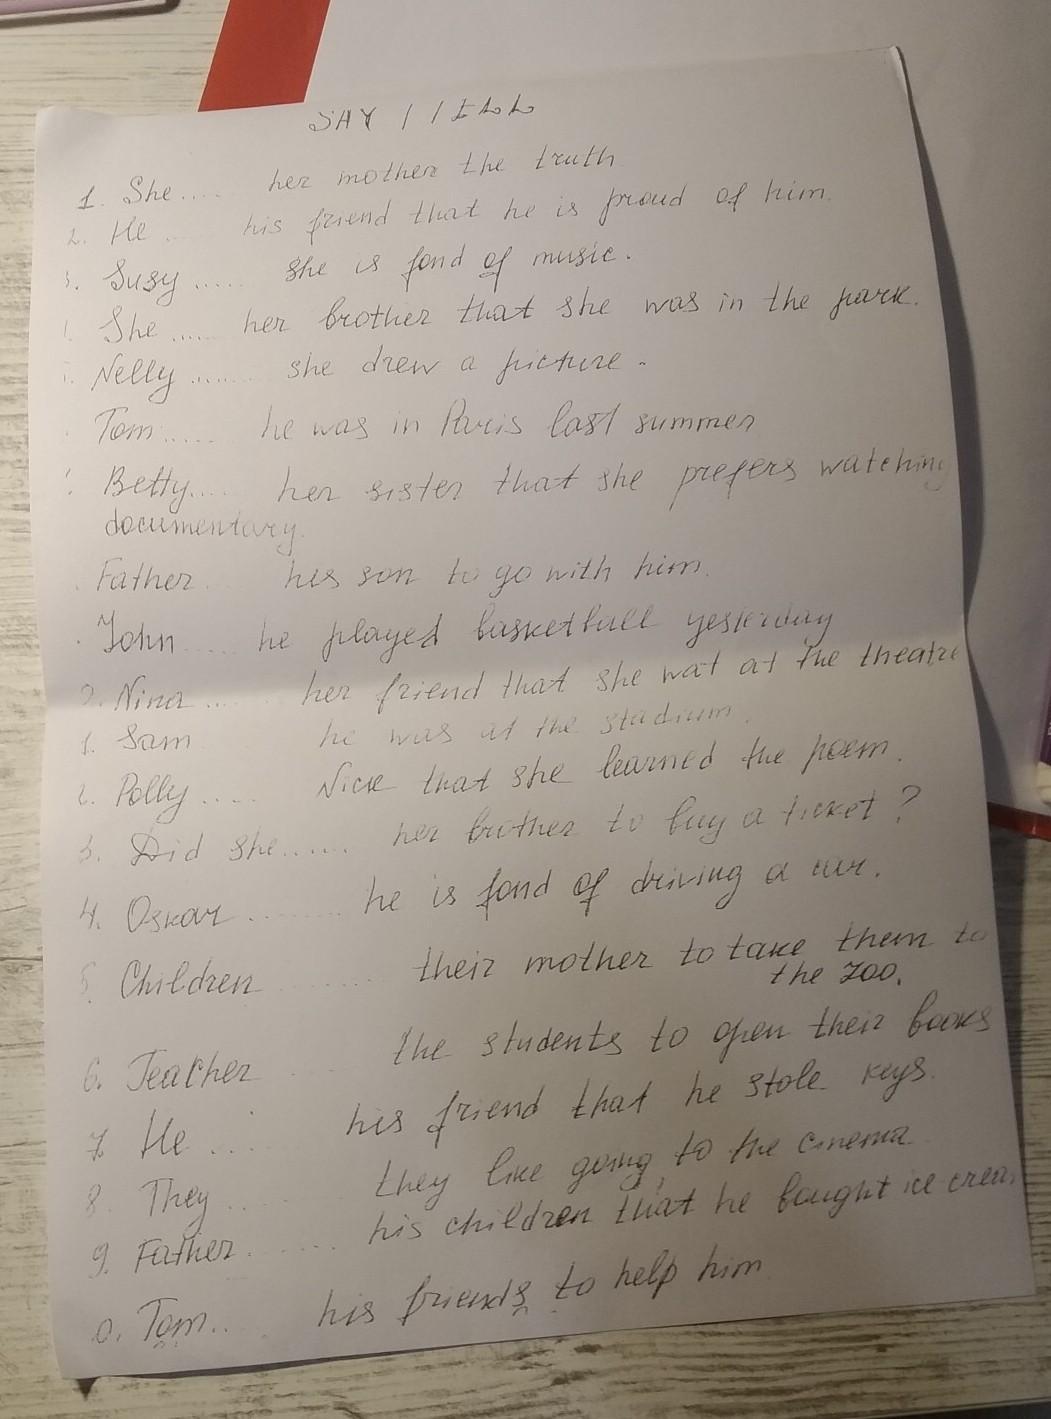 SAY / TELL
1. She.... her mother the truth
2. He .... his friend that he is proud of him.
3. Susy ..... she is fond of music.
She ..... her brother that she was in the park.
Nelly ....... she drew a picture.
Tom ..... he was in Paris last summer
Betty.... her sister that she prefers watching
documentary.
Father .... his son to go with him.
John ..... he played basketball yesterday
Nina ..... her friend that she wat at the theatre
1. Sam he was at the stadium.
2. Polly .... Nick that she learned the poem.
3. Did she...... her brother to buy a ticket?
4. Oskar ........ he is fond of driving a car.
5. Children ........ their mother to take them to
the zoo.
6. Teacher .... the students to open their books
7. He .... his friend that he stole keys.
8. They .... they like going to the cinema
9. Father ....... his children that he bought ice-cream
0. Tom.. his friends to help him